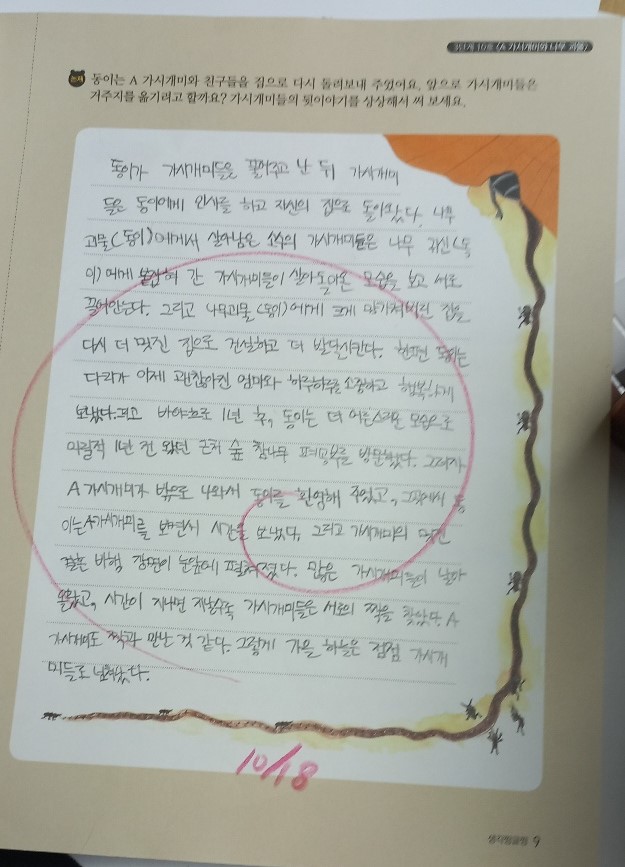 3단계 10호 〈A 가시개미와 나무 괴물〉
논제 동이는 A 가시개미와 친구들을 집으로 다시 돌려보내 주었어요. 앞으로 가시개미들은
거주지를 옮기려고 할까요? 가시개미들의 뒷이야기를 상상해서 써 보세요.
동이가 가시개미들을 풀어주고 난 뒤 가시개미
들은 동이에게 인사를 하고 자신의 집으로 돌아왔다. 나무
괴물(동이)에게서 살아남은 소수의 가시개미들은 나무 귀신(동
이)에게 붙잡혀 간 가시개미들이 살아돌아온 모습을 보고 서로
끌어안는다. 그리고 나무괴물(동이)에게 크게 망가져버린 집을
다시 더 멋진 집으로 건설하고 더 발달시킨다. 한편 동이는
다리가 이제 괜찮아진 엄마와 하루하루를 소중하고 행복하게
보냈다. 그리고 바야흐로 1년 후, 동이는 더 어른스러운 모습으로
1년 전 왔던 근처 숲 참나무 를 방문했다. 그러자
A 가시개미가 밖으로 나와서 동이를 환영해 주었고, 그곳에서 동
이는 A가시개미를 보면서 시간을 보냈다. 그리고 가시개미의 멋진
결혼 비행 장면이 눈앞에 펼쳐졌다. 많은 가시개미들이 날아
올랐고, 시간이 지나면 지날수록 가시개미들은 서로의 짝을 찾았다. A
가시개미도 짝과 만난 것 같다. 그렇게 가을 하늘은 점점 가시개
미들로 넘쳐났다.
10/18
생각링글링 9